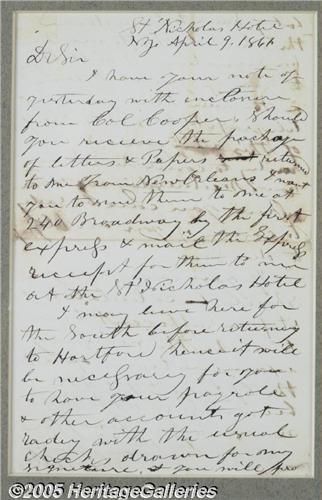 St Nicholas Hotel
N Yo April 9. 1861
Dr Sir
I have your note of
yesterday with inclosure
from Col Cooper, Should
you recieve the package
of letters & Papers returned
to me from New Orleans I want
you to send them to me at
240 Broadway by the first
express & mail the Express
receipt for them to me
at the St Nicholas Hotel
I may leave here for
the South before returning
to Hartford hence it will
be necessary for you
to have your payrole
& other accounts got
ready with the usual
checks drawn for my
signature, & you will
©2005 HeritageGalleries